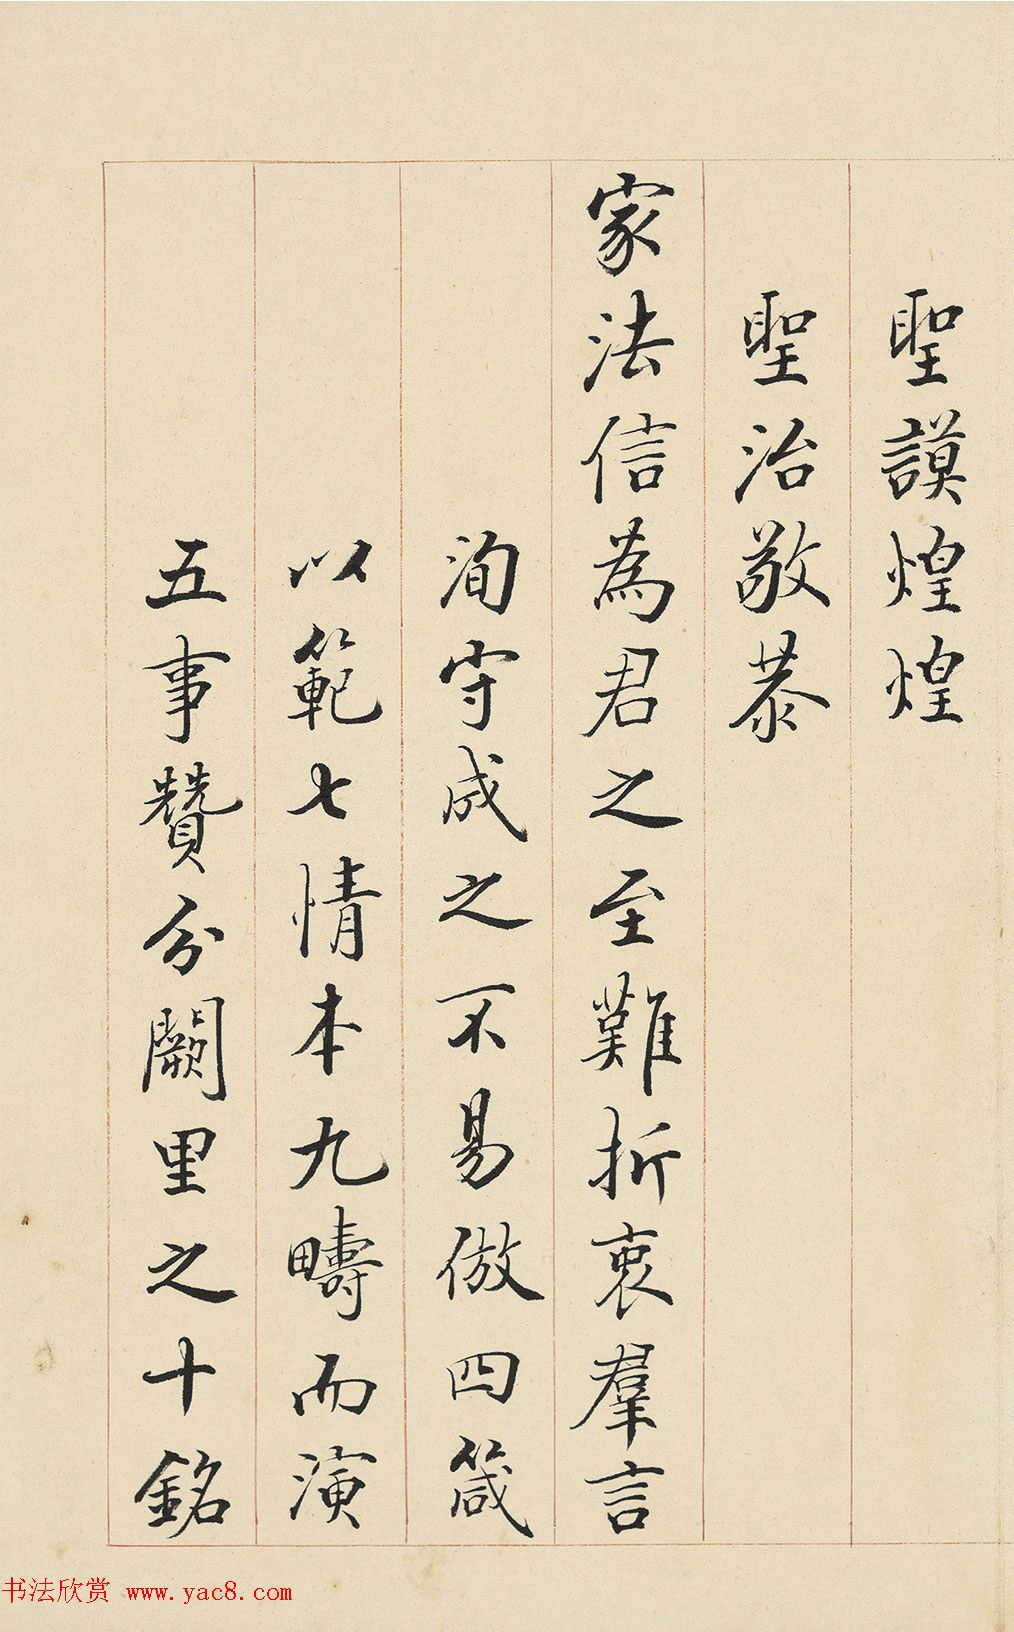 聖謨煌煌
聖治敬恭
家法信為君之至難折衷羣言
洵守成之不易倣四箴
以範七情本九疇而演
五事贊分闕里之十銘
书法欣赏 www.yac8.com